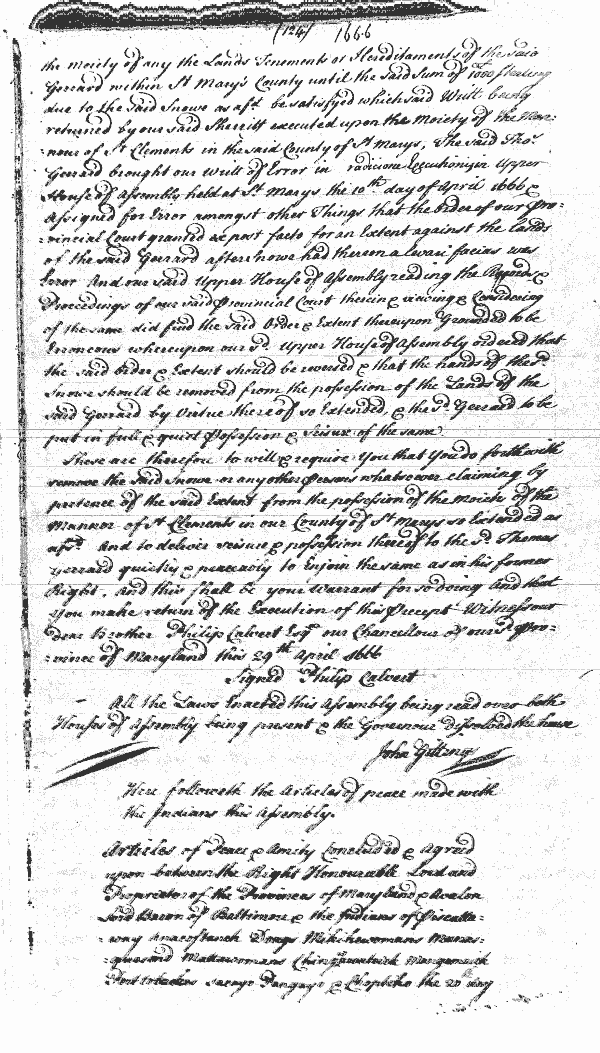 (124) 1666
the moiety of any the Lands Tenements or Hereditaments of the said
Gerrard within St Mary's County until the Said Sum of 1000 Sterling
due to the Said Snowe as afd. be satisfyed which said Writt being
returned by our said Sherriff executed upon the Moiety of the Man-
=nour of St Clements in the said County of St Marys, The said Tho:
Gerrard brought our Writt of Error in Executionis in Upper
House of Assembly held at St. Marys the 10th day of April 1666 &
Assigned for Error amongst other Things that the order of our Pro=
=vincial Court granted ex post facto for an Extent against the Lands
of the said Gerrard after Snowe had thereon a Levari facias was
Error And our said Upper House of Assembly reading the Records &
Proceedings of our said Provincial Court therein & viewing & Considering
of the same did find the Said Order & Extent thereupon Grounded to be
Erroneous whereupon our sd. Upper House of Assembly ordered that
the said Order & Extent should be reversed & that the hands of the sd.
Snowe should be removed from the possession of the Lands of the
said Gerrard by Virtue thereof so Extended, & the sd. Gerrard to be
put in full & quiet Possession & Seisure of the same.
These are therefore to will & require You that You do forthwith
remove the Said Snowe or any other Persons whatsoever claiming by
pretence of the said Extent from the possession of the Moiety of the
Mannor of St Clements in our County of St Marys so Extended as
afsd. And to deliver seisure & possession thereof to the sd. Thomas
Gerrard quietly & peaceably to Enjoin the same as in his former
Right. And this shall be your warrant for so doing And that
You make return of the Execution of this Precept Witness our
Dear Brother Philip Calvert Esqr. our Chancellour of our sd. Pro=
=vince of Maryland this 29th April 1666
Signed Philip Calvert
All the Laws Enacted this Assembly being read over both
Houses of Assembly being present & the Governour Dissolved the house
John Gittings
Here followeth the Articles of peace made with
the Indians this Assembly.
Articles of Peace & Amity Concluded & Agreed
upon between the Right Honourable Lord and
Proprietor of the Provinces of Maryland & Avalon
Lord Baron of Baltimore & the Indians of Piscatta-
way Anacostanck Doags Mikikiwomans Manas-
=quesend Mattawomans Chingwawateick
Portobackes Sacayo Pangayo & Choptico the 20th day